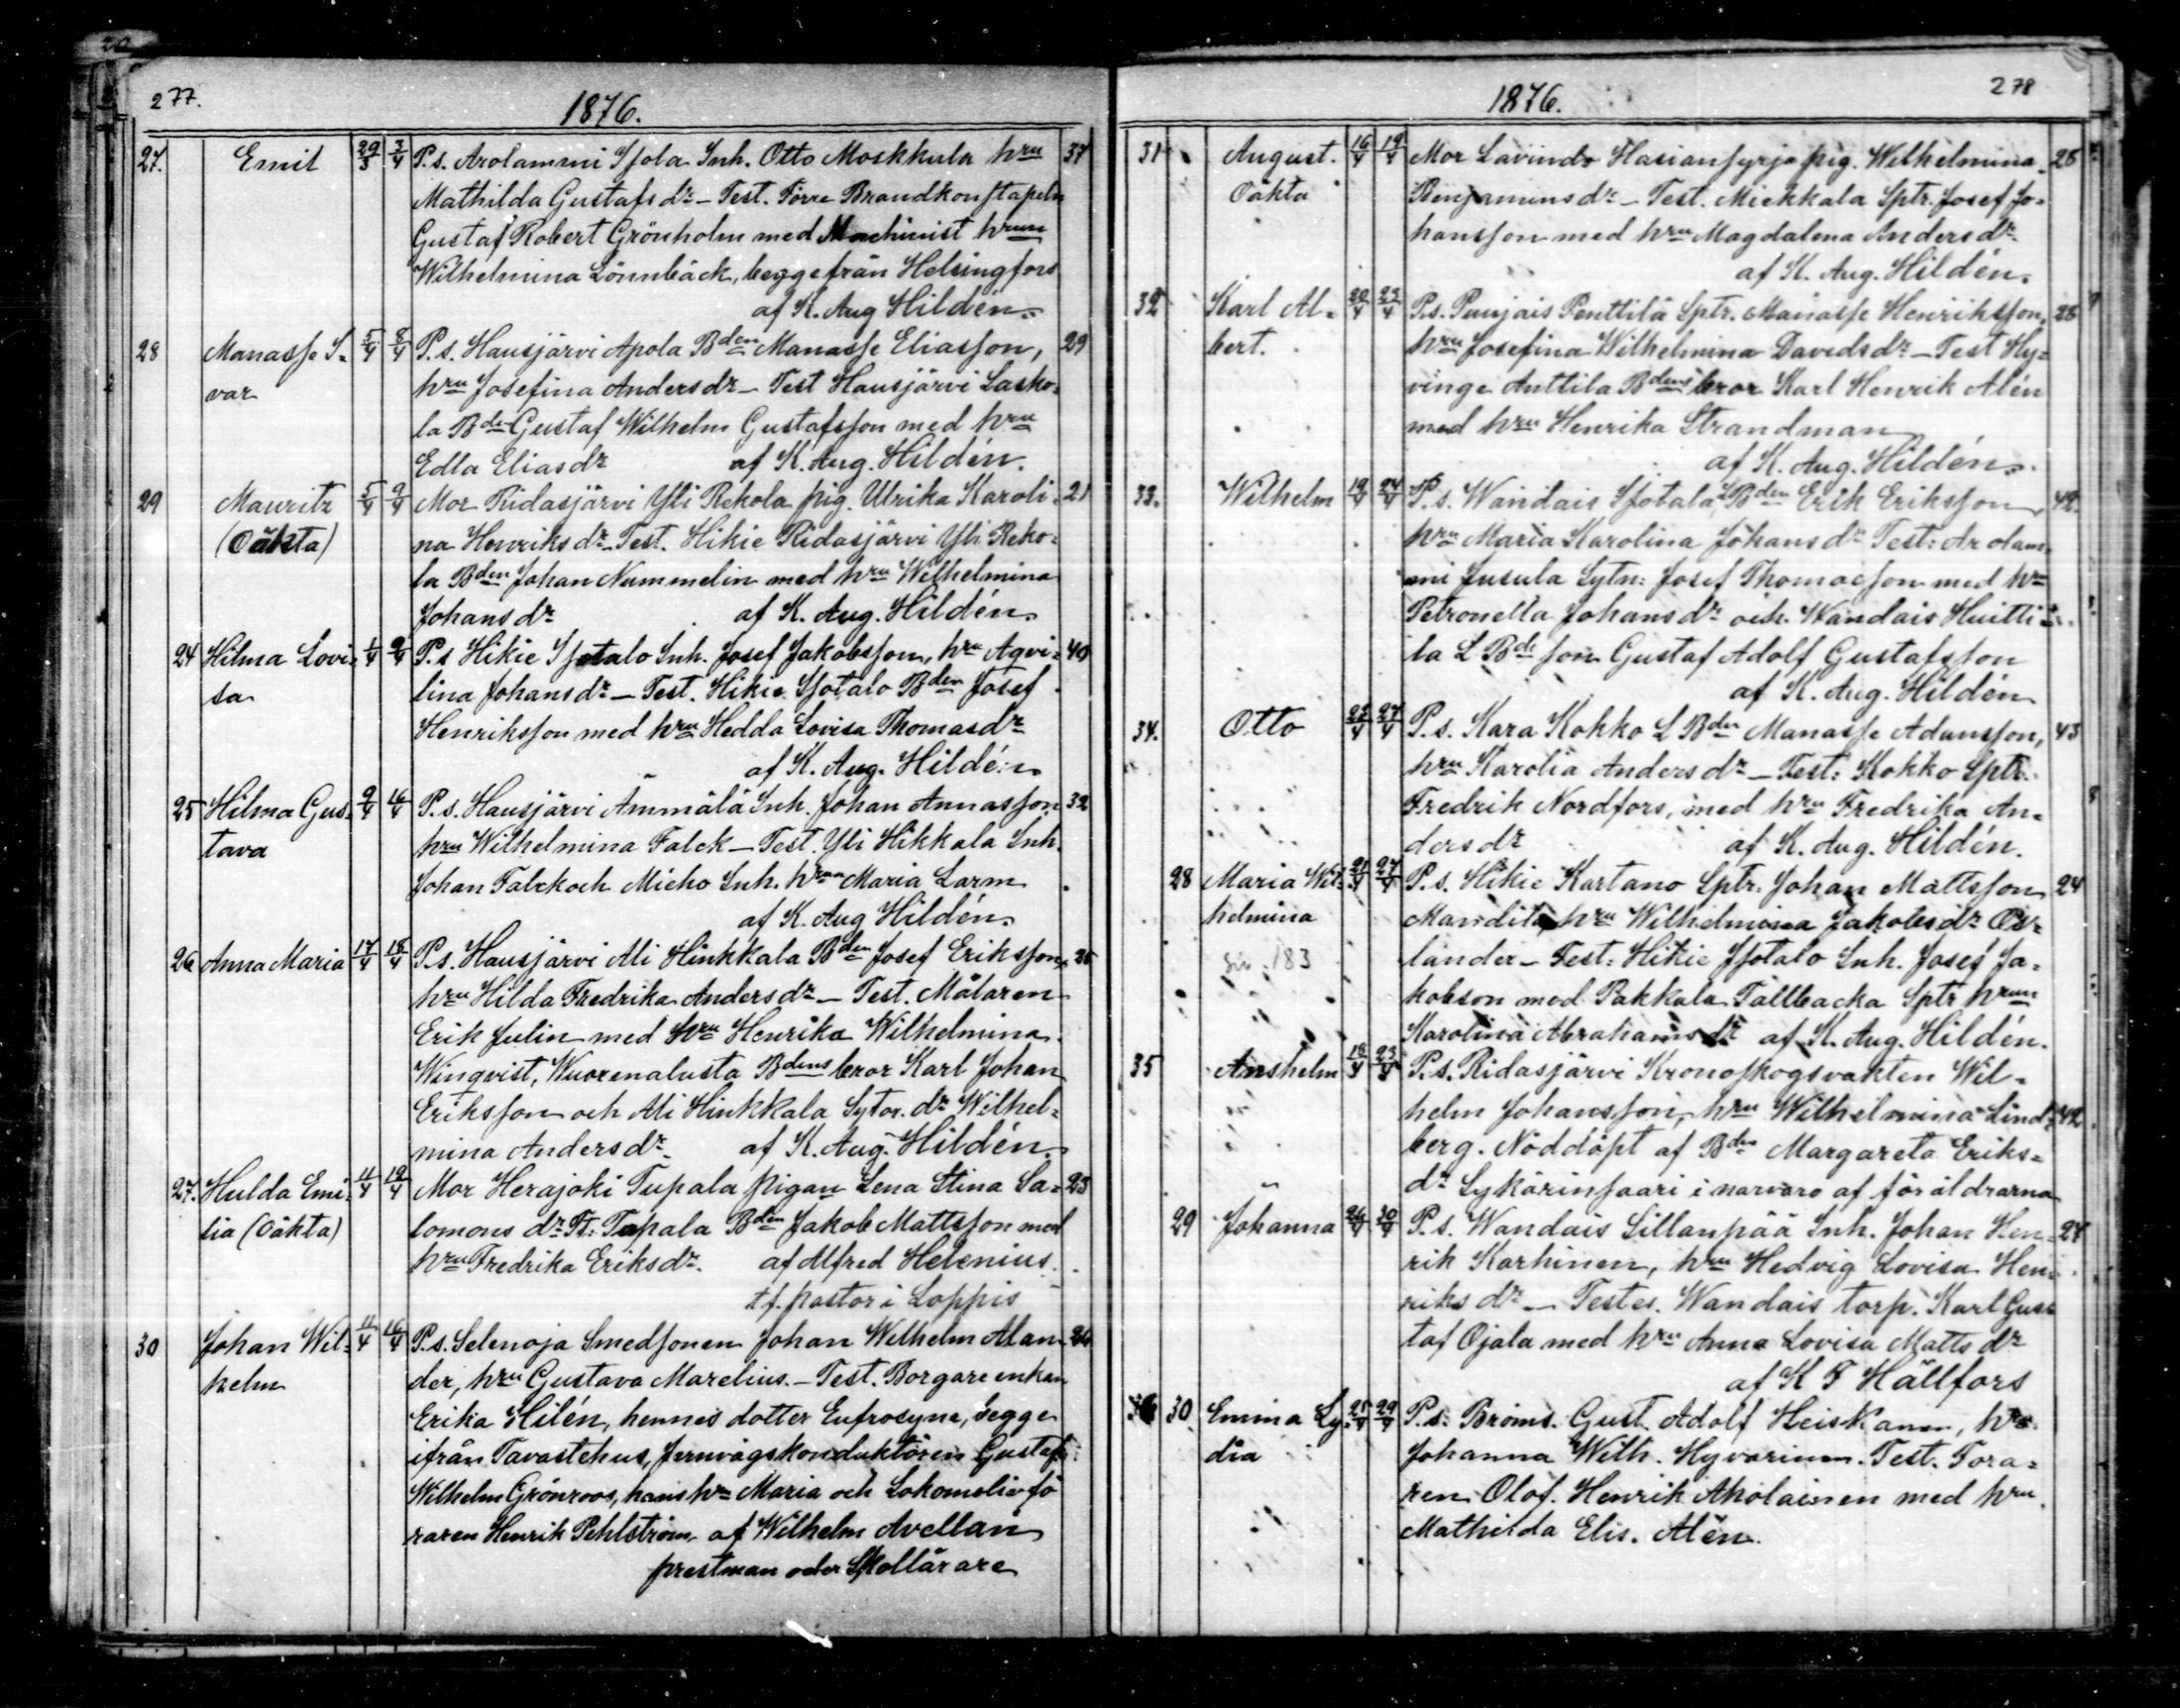 277.
1876.
27. Emil 29/3 3/4 P.s. Arolammi Isola Inh. Otto Moskkula hru 37
Mathilda Gustafs dr – Test. Förre Brandkonstapeln
Gustaf Robert Grönholm med Machinist hrun
Wilhelmina Lönnbäck, begge från Helsingfors
af K. Aug Hildén.
28 Manasse I- 5/4 8/4 P.s. Hausjärvi Apola Bden Manasse Eliasson, 29
var hru Josefina Anders dr – Test Hausjärvi Lasko-
la Bde Gustaf Wilhelm Gustafsson med hru
Edla Elias dr af K. Aug. Hildén.
29 Mauritz 5/4 9/4 Mor Ridasjärvi Yli Rekola pig. Ulrika Karoli- 21
(Oäkta) na Henriks dr – Test. Hikie Ridasjärvi Yli Reko-
la Bden Johan Nummelin med hru Wilhelmina
Johans dr af K. Aug. Hildén.
24 Hilma Lovi- 1/4 9/4 P.s Hikie Isotalo Inh. Josef Jakobsson, hru Aqvi- 40
sa lina Johans dr – Test. Hikie Isotalo Bden Josef
Henriksson med hru Hedda Lovisa Thomas dr
af K. Aug. Hildén
25 Hilma Gus- 9/4 16/4 P.s. Hausjärvi Ämmälä Inh. Johan Annasson 32
tava hru Wilhelmina Falck – Test. Yli Hikkala Inh.
Johan Falck och Micho Inh. hrun Maria Larm
af K. Aug Hildén.
26 Anna Maria 17/4 18/4 P.s. Hausjärvi Ali Hinkkala Bden Josef Eriksson,
hru Hilda Fredrika Anders dr – Test. Målaren
Erik Julin med hru Henrika Wilhelmina
Winqvist, Wuorenalusta Bdens bror Karl Johan
Eriksson och Ali Hinkkala Sytn. dr Wilhel-
mina Anders dr. af K. Aug. Hildén.
27. Hulda Emi- 11/4 19/4 Mor Herajoki Tupala pigan Lena Stina Sa- 23
lia (Oäkta) lomons dr. Tt: Tupala Bden Jakob Mattsson med
hru Fredrika Eriks dr. af Alfred Helenius.
tf. pastor i Loppis
30 Johan Wil- 11/4 16/4 P.s. Selenoja Smedsonen Johan Welhelm Alan-
helm der, hru Gustava Marelius. – Test. Borgare enkan
Erika Hilén, hennes dotter Eufrosyne, begge
ifrån Tavastehus, Jernvägskonduktören Gustaf
Wilhelm Grönroos, hans hru Maria och Lokomotivfö
raren Henrik Pehlström. af Wilhelm Avellan
prestman och Skollärare
278
1876.
31 August. 16/4 19/4 Mor Lavinds Hasiansyrjä pig. Wilhelmina
Oäkta Benjamins dr – Test. Mickkala Sptr. Josef Jo-
hansson med hru Magdalena Anders dr.
af K. Aug. Hildén.
32 Karl Al- 20/4 23/4 P.s. Punjais Penttilä Sptr. Manasse Henriksson, 28
bert. hru Josefina Wilhelmina Davids dr – Test Hy-
vinge Anttila Bdens bror Karl Henrik Alén
med hru Henrika Strandman
af K. Aug. Hildén.
33. Wilhelm 19/4 24/4 P.s. Wandais Isotala, LBden Erik Eriksson, 42.
hru Maria Karolina Johans dr Test: Arolam-
mi Jusula Sytn: Josef Thomasson med hru
Petronella Johans dr och Wandais Huitti-
la L Bde son Gustaf Adolf Gustafsson
af K. Aug. Hildén
34. Otto 27/4 P.s. Kara Kokko L Bden Manasse Adamsson, 43
hru Karolia Anders dr – Test: Kokko Sptr.
Fredrik Nordfors, med hru Fredrika An-
ders dr af K. Aug. Hildén.
28 Maria Wil- 21/4 27/4 P.s. Hikie Kartano Sptr. Johan Mattsson 24
helmina Mandita hru Wilhelmina Jakobs dr Ös-
183 länder – Test: Hikie Isotalo Inh. Josef Ja-
kobson med Pakkala Tallbacka Sptr hrun
Karolina Abrahams dr af K. Aug. Hildén.
35 Anshelm 18/4 23/4 P.s. Ridasjärvi Kronoskogsvakten Wil-
helm Johansson, hru Wilhelmina Lind- 42
berg. Nöddöpt af Bden Margareta Eriks-
dr Sykärinsaari i narvaro af föräldrarna
29 Johanna 26/4 30/4 P.s. Wandais Sillanpää Inh. Johan Hen- 24
rik Karhinen, hru Hedvig Lovisa Hen-
riks dr – Testes. Wandais torp. Karl Gus-
taf Ojala med hru Anna Lovisa Matts dr
af K F Hällfors
30 Emma Ly- 25/4 29/4 P.s. Bröms. Gust. Adolf Heiskanen, hru
dia Johanna Wilh. Hyvärinen. Test. Fora-
ren Olof. Henrik Aholainen med hru
Mathilda Elis. Alén.